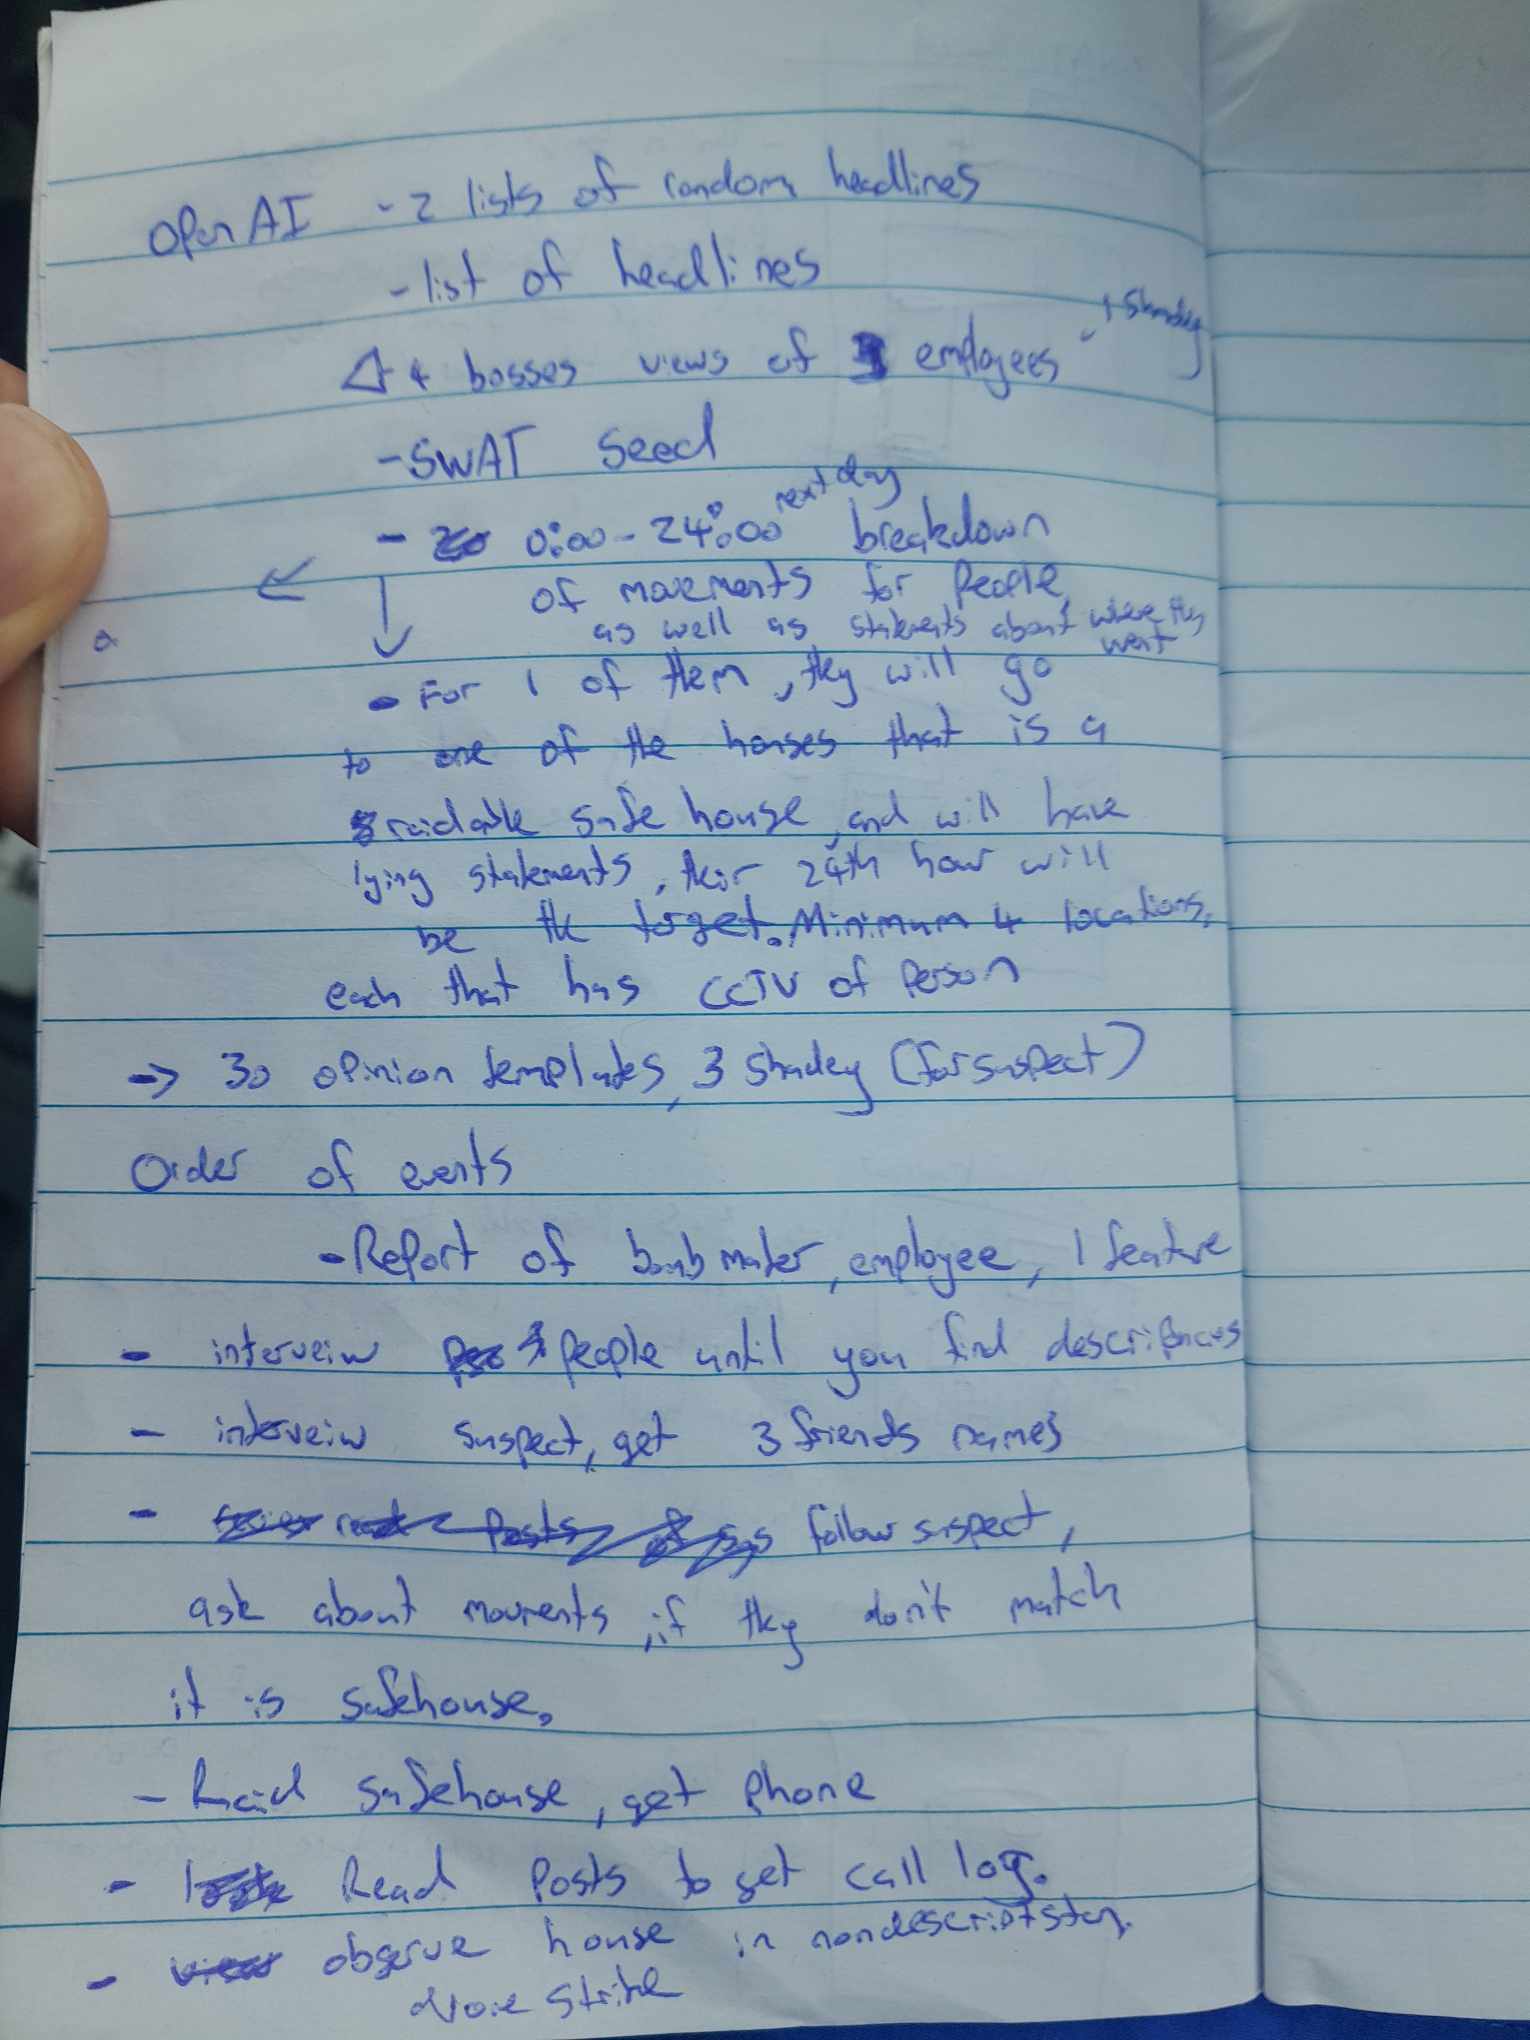 OpenAI - 2 lists of random headlines
- list of headlines
4 bosses views of 3 employees, 1 shadey
- SWAT seed
- 0:00 - 24:00 next day breakdown
of movements for people,
as well as statements about where they
went
- For 1 of them, they will go
to one of the houses that is a
raidable safe house, and will have
lying statements, their 24th hour will
be the target. Minimum 4 locations,
each that has CCTV of person
-> 30 opinion templates, 3 shadey (for suspect)
Order of events
- Report of bomb maker, employee, 1 feature
- interveiw people until you find
- interveiw suspect, get 3 friends names
- follow suspect,
ask about movments, if they don't match
it is safehouse.
- Raid safehouse, get phone
- Read Posts to get call log.
- observe house in nondescript